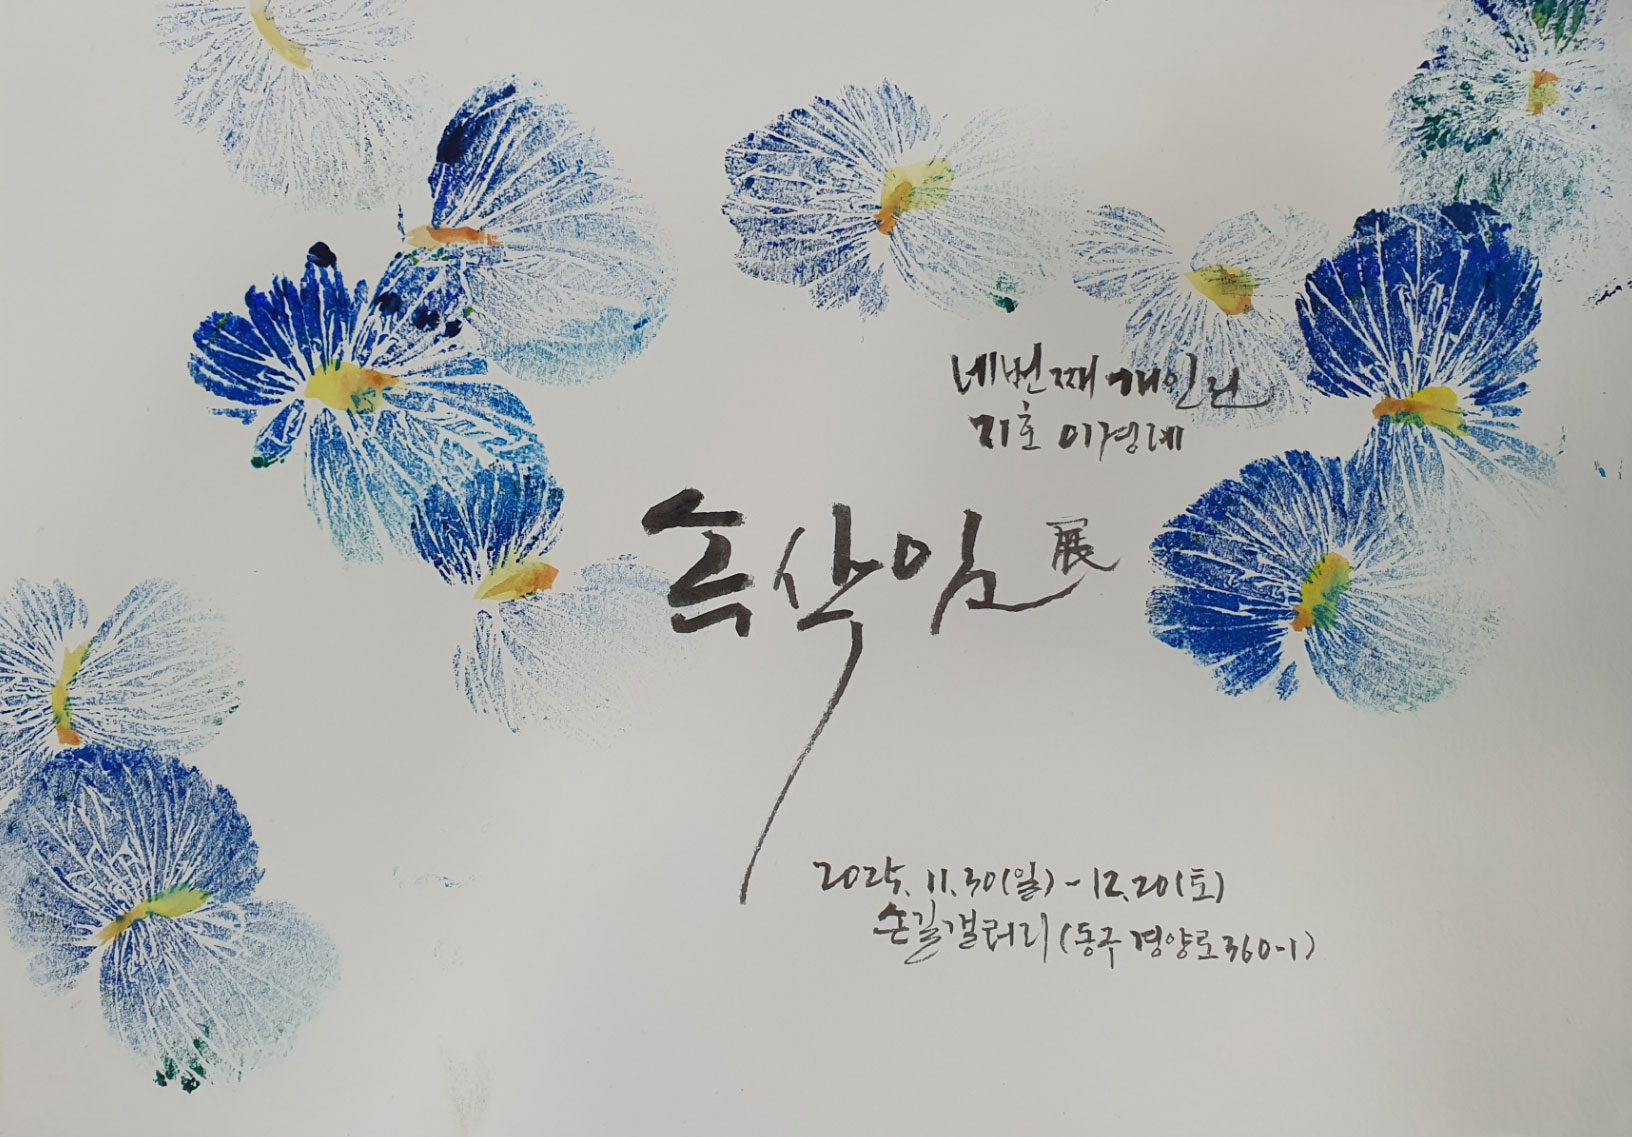 네번째 개인전
지호 이경례
속삭임 展
2025. 11. 30(일) - 12. 20(토)
손길갤러리 (동구 경양로 360-1)